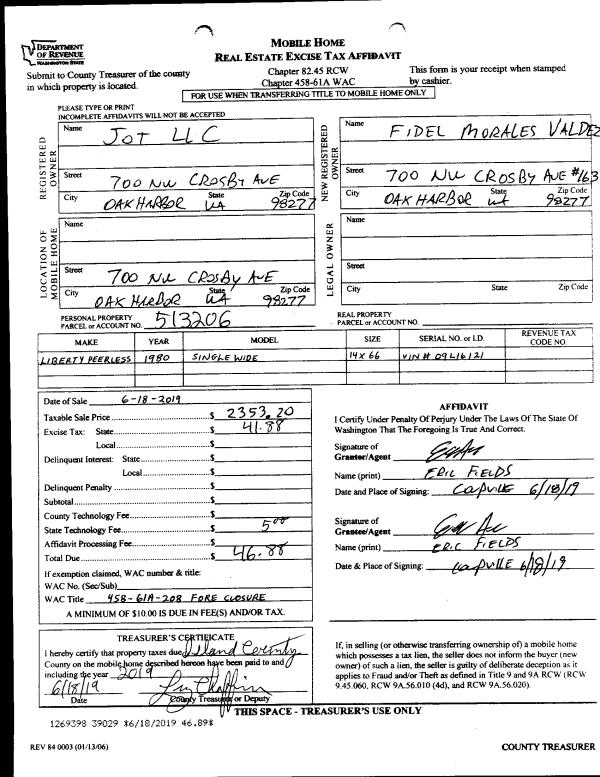 DEPARTMENT
OF REVENUE
WASHINGTON STATE
MOBILE HOME
REAL ESTATE EXCISE TAX AFFIDAVIT
Submit to County Treasurer of the county
in which property is located.
Chapter 82.45 RCW
Chapter 458-61A WAC
This form is your receipt when stamped
by cashier.
FOR USE WHEN TRANSFERRING TITLE TO MOBILE HOME ONLY
PLEASE TYPE OR PRINT
INCOMPLETE AFFIDAVITS WILL NOT BE ACCEPTED
REGISTERED
OWNER
Name JOT LLC
Street 700 NW CROSBY AVE
City OAK HARBOR State WA Zip Code 98277
NEW REGISTERED
OWNER
Name FIDEL MORALES VALDEZ
Street 700 NW CROSBY AVE #163
City OAK HARBOR State WA Zip Code 98277
LOCATION OF
MOBILE HOME
Name
Street 700 NW CROSBY AVE
City OAK HARBOR State WA Zip Code 98277
LEGAL OWNER
Name
Street
City State Zip Code
PERSONAL PROPERTY
PARCEL or ACCOUNT NO. 513206
REAL PROPERTY
PARCEL or ACCOUNT NO.
MAKE YEAR MODEL SIZE SERIAL NO. or I.D. REVENUE TAX
CODE NO.
LIBERTY PEERLESS 1980 SINGLE WIDE 14 X 66 VIN # 09L16121
Date of Sale 6-18-2019
Taxable Sale Price $ 2353.20
Excise Tax: State $ 41.88
Local $
Delinquent Interest: State $
Local $
Delinquent Penalty $
Subtotal $
County Technology Fee $
State Technology Fee $ 5.00
Affidavit Processing Fee $
Total Due $ 46.88
If exemption claimed, WAC number & title:
WAC No. (Sec/Sub)
WAC Title 458-61A-208 FORE CLOSURE
A MINIMUM OF $10.00 IS DUE IN FEE(S) AND/OR TAX.
AFFIDAVIT
I Certify Under Penalty Of Perjury Under The Laws Of The State Of
Washington That The Foregoing Is True And Correct.
Signature of
Grantor/Agent
Name (print) ERIC FIELDS
Date and Place of Signing: 6/18/19
Signature of
Grantee/Agent
Name (print) ERIC FIELDS
Date & Place of Signing: 6/18/19
TREASURER'S CERTIFICATE
I hereby certify that property taxes due Island County
County on the mobile home described hereon have been paid to and
including the year 2019
6/18/19
Date County Treasurer or Deputy
If, in selling (or otherwise transferring ownership of) a mobile home
which possesses a tax lien, the seller does not inform the buyer (new
owner) of such a lien, the seller is guilty of deliberate deception as it
applies to Fraud and/or Theft as defined in Title 9 and 9A RCW (RCW
9.45.060, RCW 9A.56.010 (4d), and RCW 9A.56.020).
THIS SPACE - TREASURER'S USE ONLY
1269398 39029 *6/18/2019 46.89*
REV 84 0003 (01/13/06)
COUNTY TREASURER